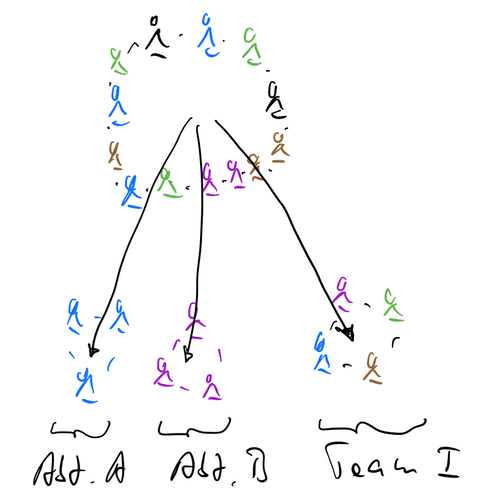 Abt. A Abt. B Team I